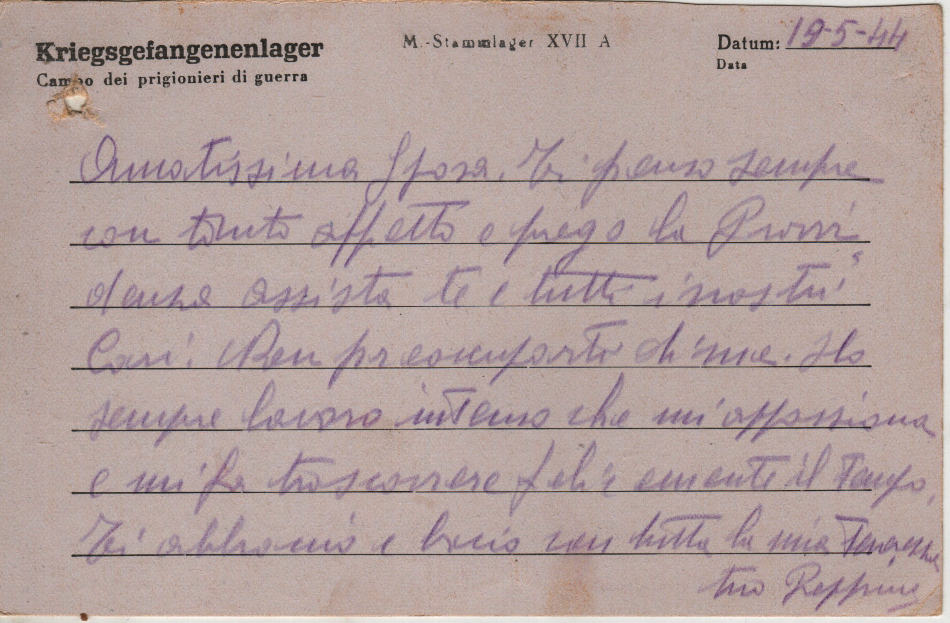 Kriegsgefangenenlager
M.-Stammlager XVII A
Datum: 19-5-44
Campo dei prigionieri di guerra
Data
Amatissima Sposa. Ti penso sempre
con tanto affetto e prego la Provvi
denza assista te e tutti i nostri
Cari. Non preoccuparti di me. Ho
sempre lavoro intenso che mi appassiona
e mi fa trascorrere felicemente il tempo.
Ti abbraccio e bacio con tutta la mia tenerezza
tuo